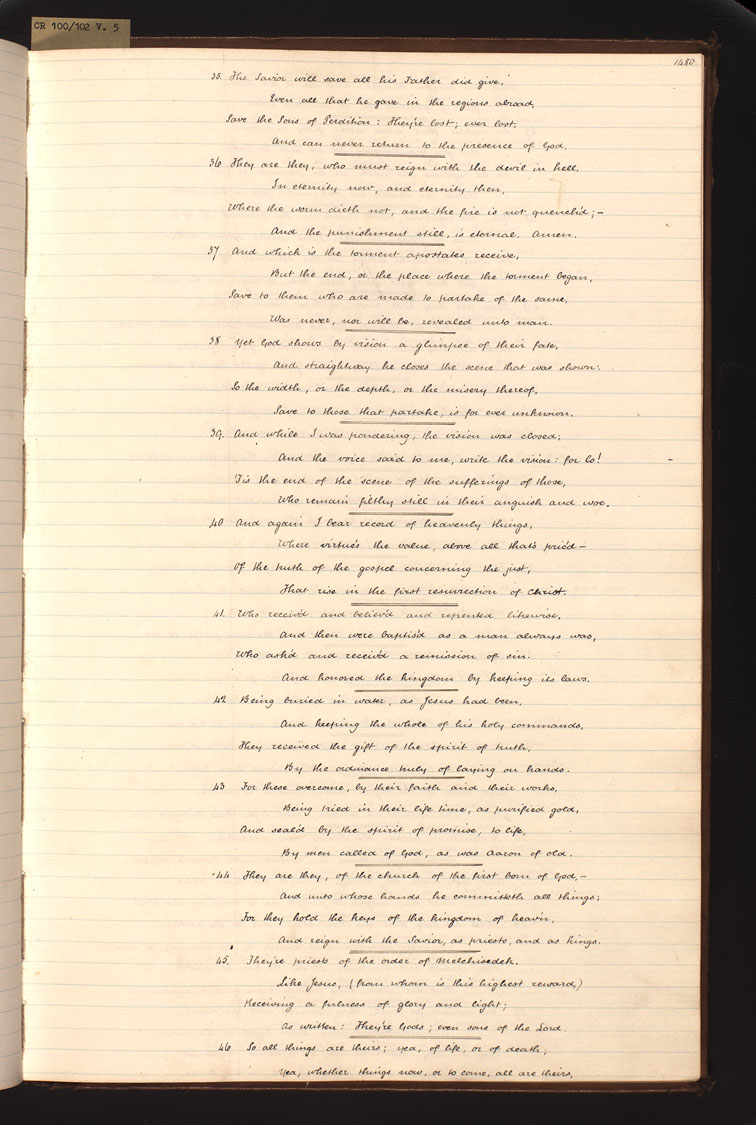 CR 100/102 V. 5
1480
35. The Savior will save all his Father did give,
Even all that he gave in the regions abroad,
Save the Sons of Perdition: They're lost; ever lost,
And can never return to the presence of God.
36 They are they, who must reign with the devil in hell,
In eternity now, and eternity then,
Where the worm dieth not, and the fire is not quench'd;—
And the punishment still, is eternal. Amen.
37 And which is the torment apostates receive,
But the end, or the place where the torment began,
Save to them who are made to partake of the same,
Was never, nor will be, revealed unto man.
38 Yet God shows by vision a glimpse of their fate,
And straightway he closes the scene that was shown:
So the width, or the depth, or the misery thereof,
Save to those that partake, is for ever unknown.
39. And while I was pondering, the vision was closed;
And the voice said to me, write the vision: for lo!
'Tis the end of the scene of the sufferings of those,
Who remain filthy still in their anguish and woe.
40 And again I bear record of heavenly things,
Where virtue's the value, above all that's pric'd—
Of the truth of the gospel concerning the just,
That rise in the first resurrection of Christ.
41. Who receiv'd and believ'd and repented likewise,
And then were baptis'd as a man always was,
Who ask'd and receiv'd a remission of sin.
And honored the kingdom by keeping its laws.
42 Being buried in water, as Jesus had been,
And keeping the whole of his holy commands,
They received the gift of the spirit of truth,
By the ordinance truly of laying on hands.
43 For these overcome, by their faith and their works,
Being tried in their life time, as purified gold,
And seal'd by the spirit of promise, to life,
By men called of God, as was Aaron of old.
44 They are they, of the church of the first born of God,—
And unto whose hands he committeth all things;
For they hold the keys of the kingdom of heav'n,
And reign with the Savior, as priests, and as kings.
45. They're priests of the order of Melchisedek.
Like Jesus, (from whom is this highest reward,)
Receiving a fulness of glory and light;
As written: They're Gods; even sons of the Lord.
46 So all things are theirs; yea, of life, or of death;
Yea, whether things now, or to come, all are theirs,